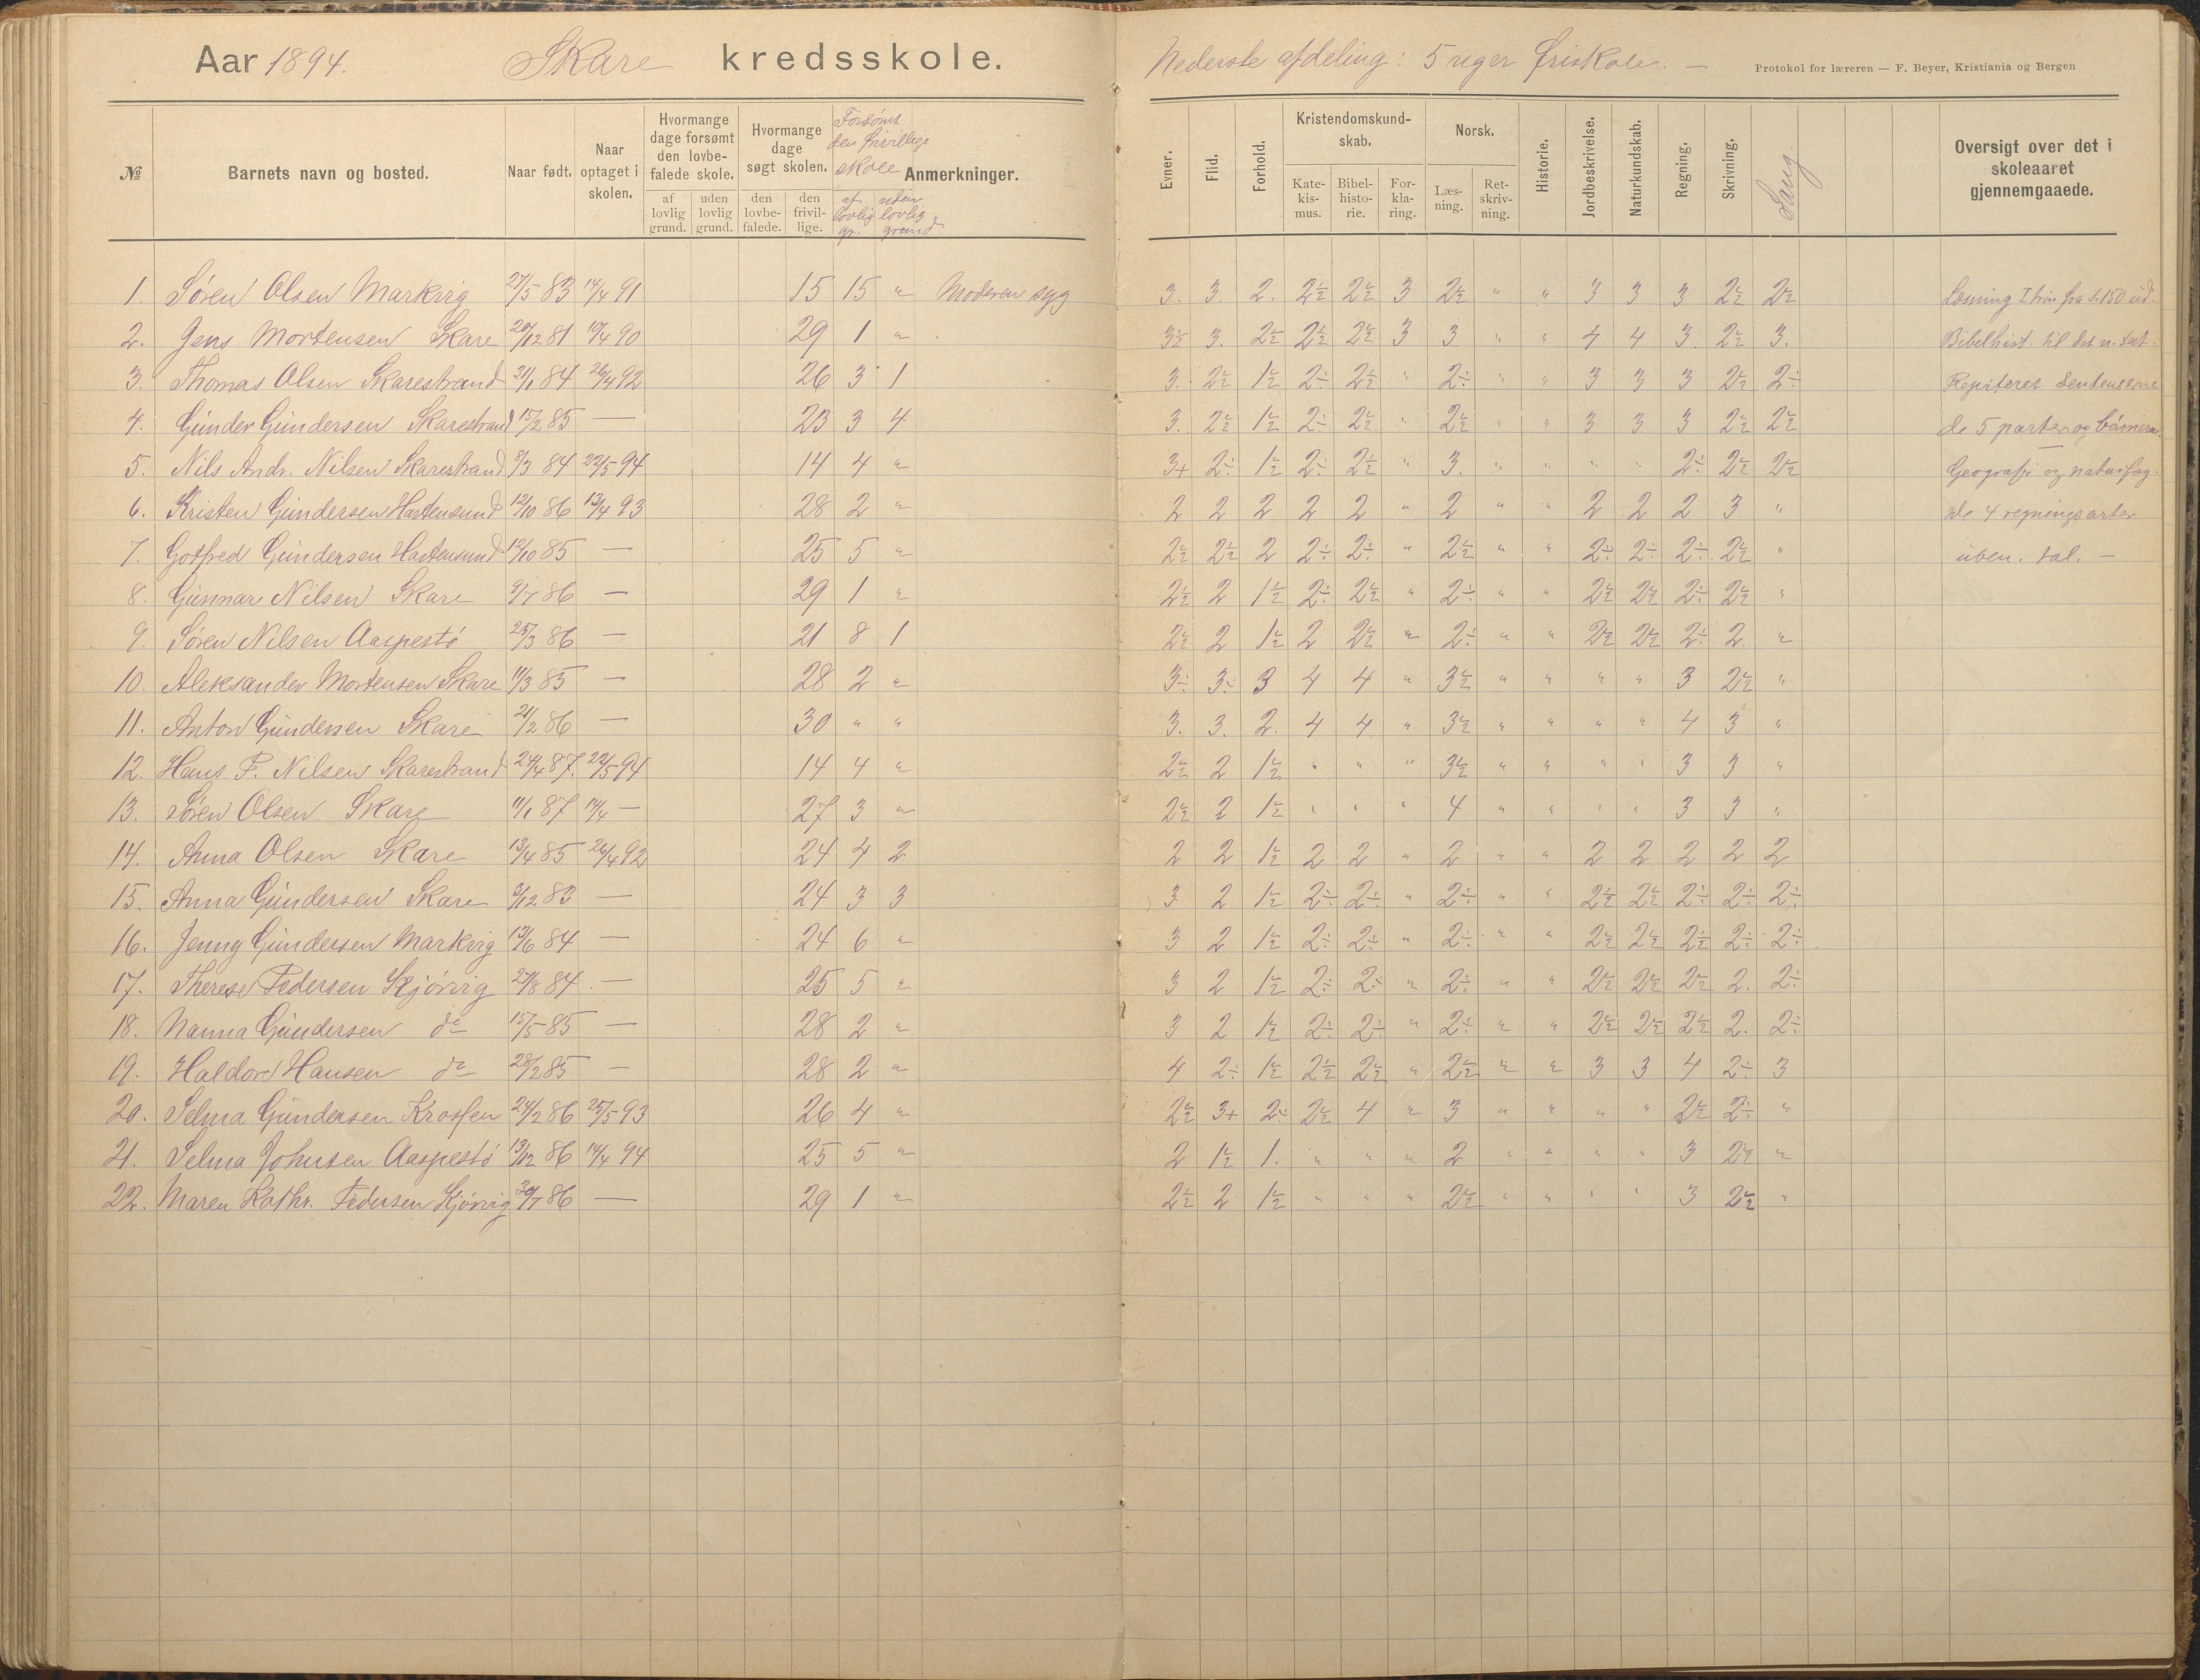 Aar 1894. Skare kredsskole.
Nederste afdeling: 5 uger friskole. —
Protokol for læreren — F. Beyer, Kristiania og Bergen
№ Barnets navn og bosted. Naar født. Naar optaget i skolen. Hvormange dage forsømt den lovbefalede skole. af lovlig grund. uden lovlig grund. Hvormange dage søgt skolen. den lovbefalede. den frivillige. Forsømt den frivillige skole af lovlig gr. uden lovlig grund Anmerkninger.
Evner. Flid. Forhold. Kristendomskundskab. Katekismus. Bibelhistorie. Forklaring. Norsk. Læsning. Retskrivning. Historie. Jordbeskrivelse. Naturkundskab. Regning. Skrivning. Sang. Oversigt over det i skoleaaret gjennemgaaede.
1. Søren Olsen Markvig 27/5 83 14/4 91 15 15 " Moderen syg 3. 3. 2. 2½ 2½ 3 2½ " " 3 3 3 2½ 2½ Læsning I trin fra s. 150 ud.
2. Jens Mortensen Skare 20/12 81 10/4 90 29 1 " 3½ 3. 2½ 2½ 2½ 3 3 " " 4 4 3. 2½ 3. Bibelhist. til det n. test.
3. Thomas Olsen Skarestrand 31/1 84 26/4 92 26 3 1 3. 2½ 1½ 2÷ 2½ " 2÷ " " 3 3 3 2½ 2÷ Repiteret sentenserne
4. Gunder Gundersen Skarestrand 15/2 85 — 23 3 4 3. 2½ 1½ 2÷ 2½ " 2½ " " 3 3 3 2½ 2½ de 5 parter og
5. Nils Andr. Nilsen Skarestrand 8/3 84 22/5 94 14 4 " 3+ 2÷ 1½ 2÷ 2½ " 3. " " " " 2÷ 2½ 2½ Geografi og naturfag.
6. Kristen Gundersen Hartensund 12/10 86 13/4 93 28 2 " 2 2 2 2 2 " 2 " " 2 2 2 3 " De 4 regningsarter
7. Gotfred Gundersen Hartensund 12/10 85 — 25 5 " 2½ 2½ 2 2÷ 2÷ " 2½ " " 2÷ 2÷ 2÷ 2½ " uben. tal. —
8. Gunnar Nilsen Skare 9/7 86 — 29 1 " 2½ 2 1½ 2÷ 2½ " 2÷ " " 2½ 2½ 2÷ 2½ "
9. Søren Nilsen Aaspestø 25/3 86 — 21 8 1 2½ 2 1½ 2 2½ " 2÷ " " 2½ 2½ 2÷ 2. "
10. Aleksander Mortensen Skare 11/3 85 — 28 2 " 3÷ 3÷ 3 4 4 " 3½ " " " " 3 2½ "
11. Anton Gundersen Skare 21/2 86 — 30 " " 3. 3. 2. 4 4 " 3½ " " " " 4 3 "
12. Hans F. Nilsen Skarestrand 24/4 87. 22/5 94 14 4 " 2½ 2 1½ " " " 3½ " " " " 3 3 "
13. Søren Olsen Skare 11/1 87 14/4 — 27 3 " 2½ 2 1½ " " " 4 " " " " 3 3 "
14. Anna Olsen Skare 13/4 85 26/4 92 24 4 2 2 2 1½ 2 2 " 2 " " 2 2 2 2 2
15. Anna Gundersen Skare 9/12 83 — 24 3 3 3 2 1½ 2÷ 2÷ " 2÷ " " 2½ 2½ 2÷ 2÷ 2÷
16. Jenny Gundersen Markvig 13/6 84 — 24 6 " 3 2 1½ 2÷ 2÷ " 2÷ " " 2½ 2½ 2½ 2÷ 2÷
17. Therese Pedersen Skjøvvig 27/8 84 — 25 5 " 3 2 1½ 2÷ 2÷ " 2÷ " " 2½ 2½ 2½ 2. 2÷
18. Nanna Gundersen do 15/5 85 — 28 2 " 3 2 1½ 2÷ 2÷ " 2÷ " " 2½ 2½ 2½ 2. 2÷
19. Haldora Hansen do 28/2 85 — 28 2 " 4 2÷ 1½ 2½ 2½ " 2½ " " 3 3 4 2÷ 3
20. Selma Gundersen Krossen 24/2 86 25/5 93 26 4 " 2½ 3+ 2÷ 2½ 4 " 3 " " " " 2½ 2÷ "
21. Selma Johnsen Aaspestø 13/12 86 14/4 94 25 5 " 2 1½ 1. " " " 2 " " " " 3 2½ "
22. Maren Kathr. Pedersen Skjøvvig 30/7 86 — 29 1 " 2½ 2 1½ " " " 2½ " " " " 3 2½ "